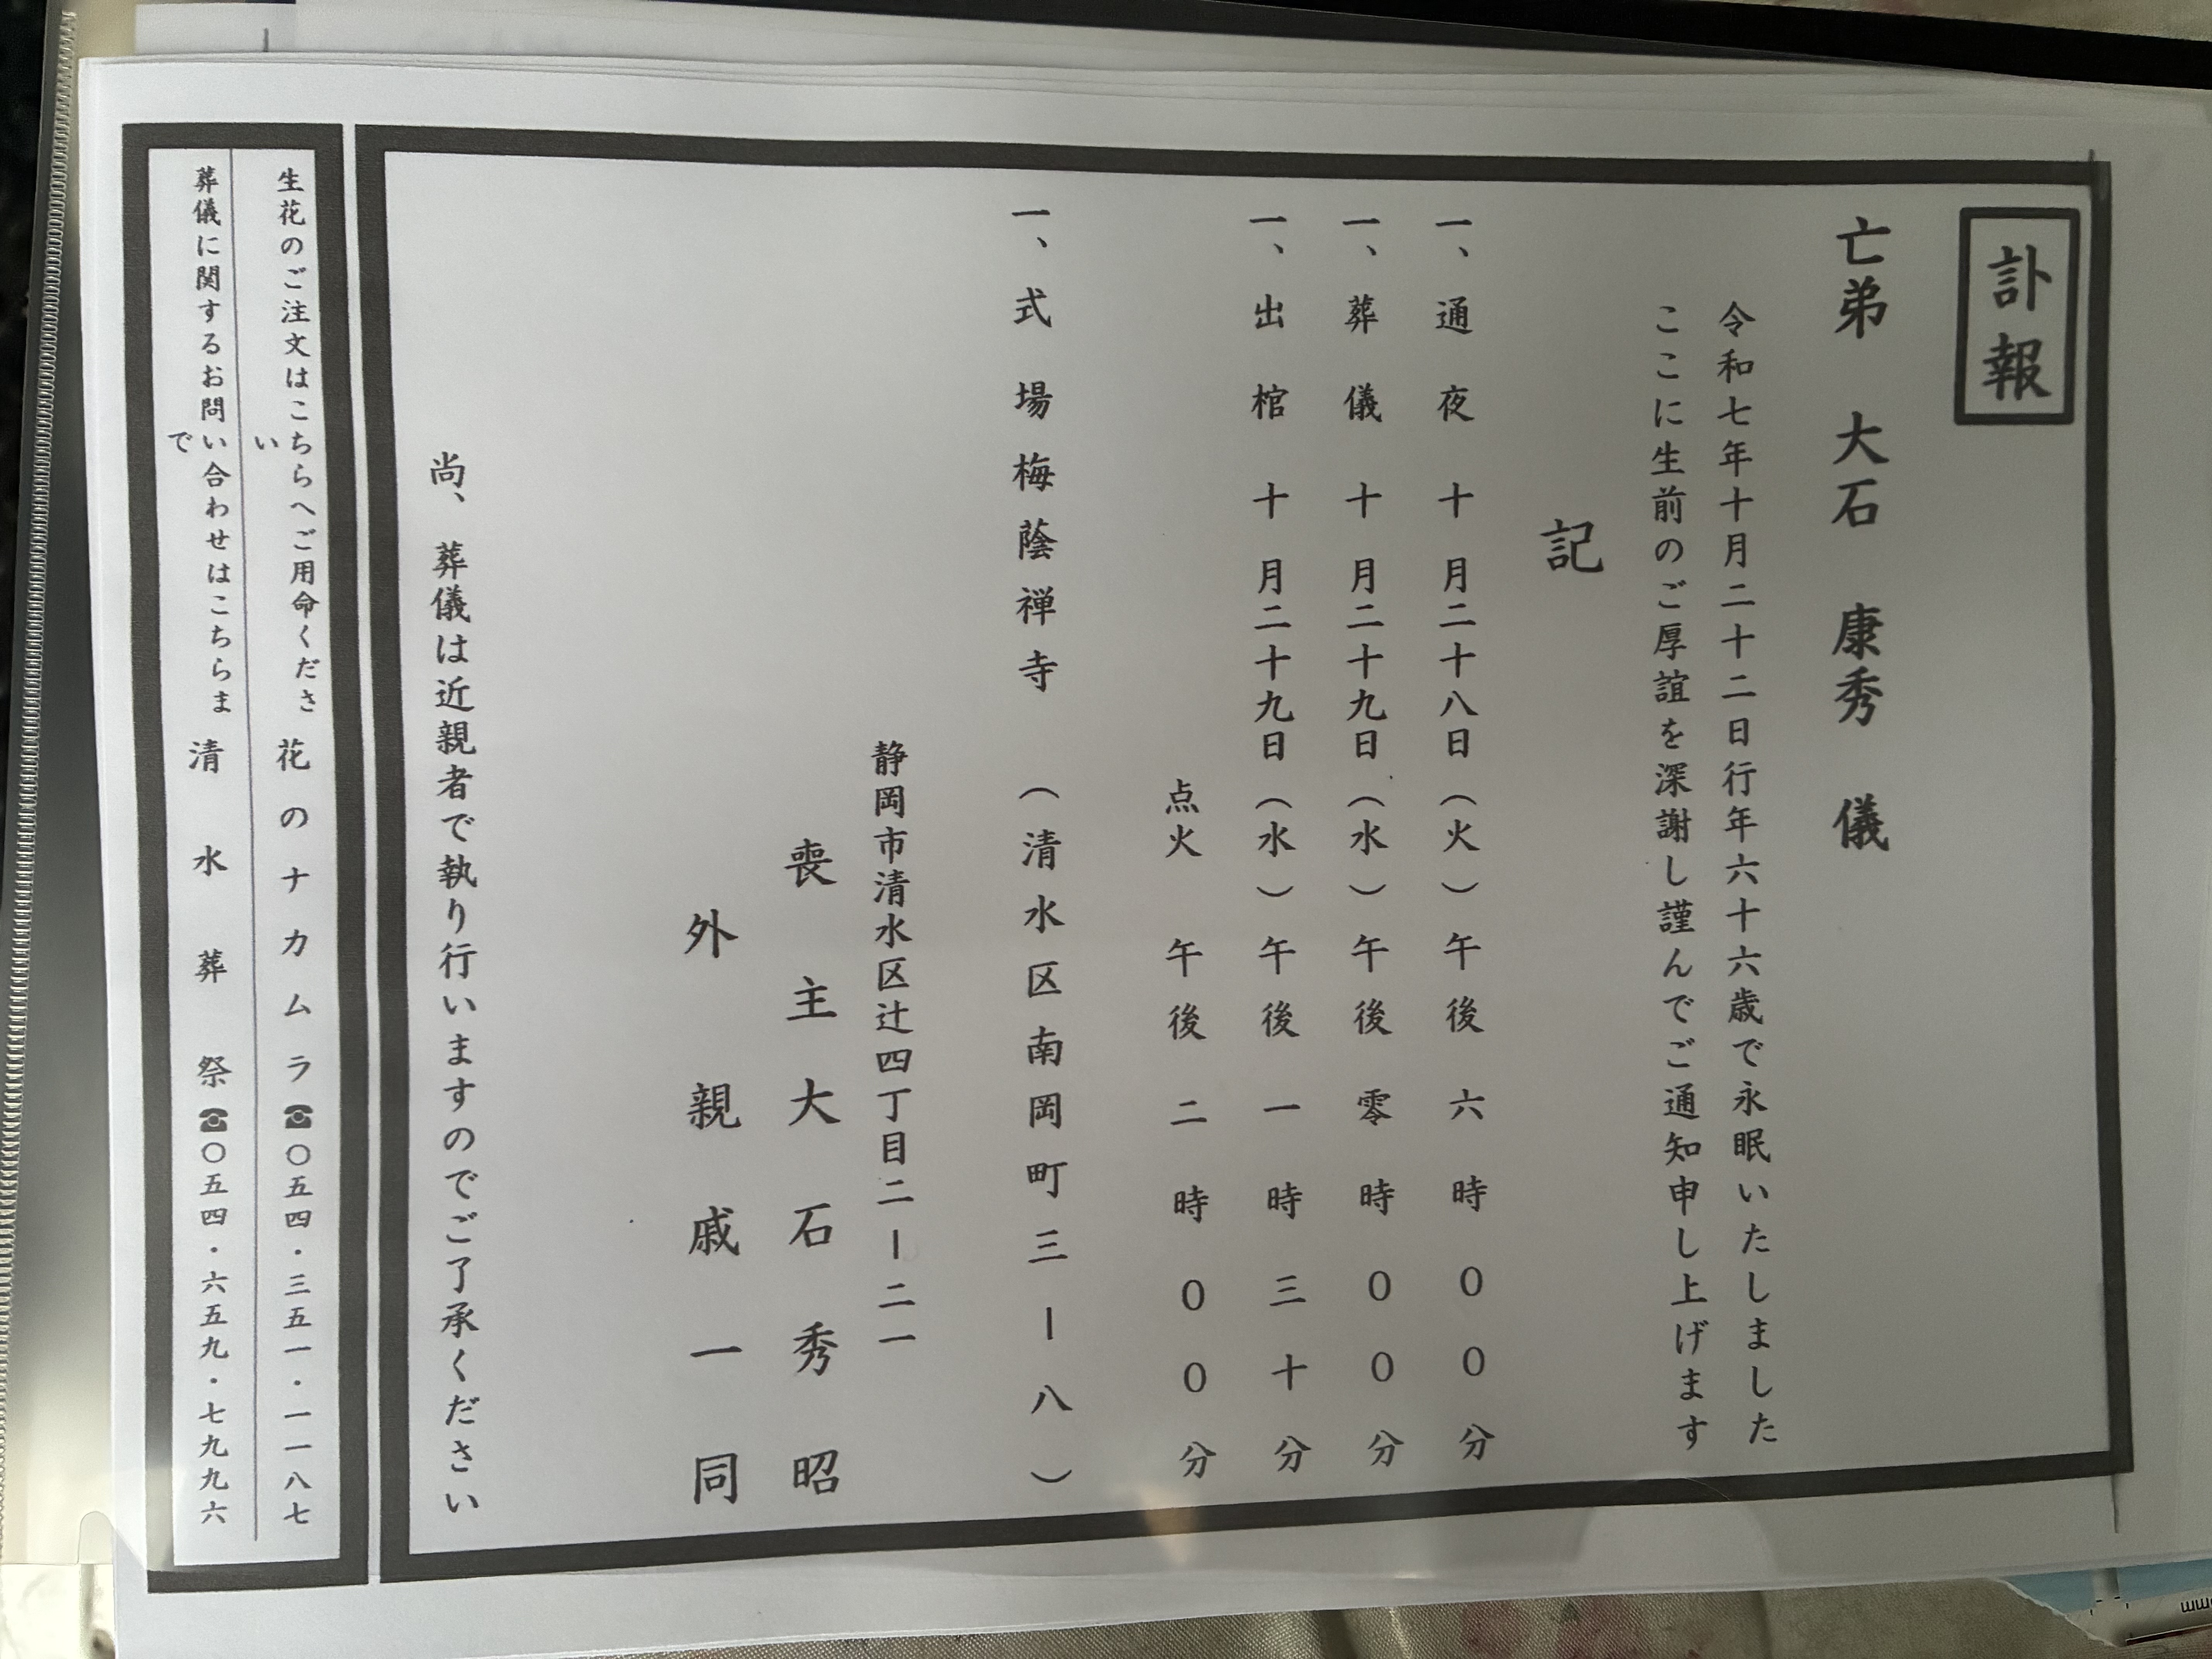 訃報
亡弟　大石　康秀　儀
令和七年十月二十二日行年六十六歳で永眠いたしました
ここに生前のご厚誼を深謝し謹んでご通知申し上げます
記
一、通夜　十月二十八日（火）午後六時００分
一、葬儀　十月二十九日（水）午後零時００分
一、出棺　十月二十九日（水）午後一時三十分
点火　午後二時００分
一、式場　梅蔭禅寺　（清水区南岡町三ー八）
静岡市清水区辻四丁目二ー二一
喪主　大石秀昭
外　親戚一同
尚、葬儀は近親者で執り行いますのでご了承ください
生花のご注文はこちらへご用命ください　花のナカムラ☎〇五四・三五一・一一八七
葬儀に関するお問い合わせはこちらまで　清水葬祭☎〇五四・六五九・七九九六